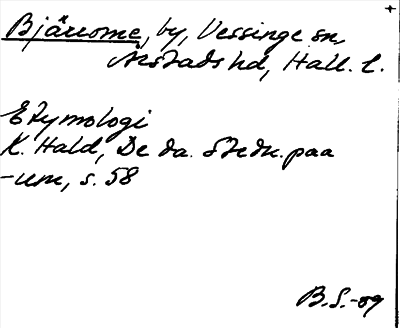 Bjärnome, by, Vessinge sn,
Årstads hd, Hall. l.
Etymologi
K. Hald, De da. Stedn. paa
-um, s. 58
B.S.-09